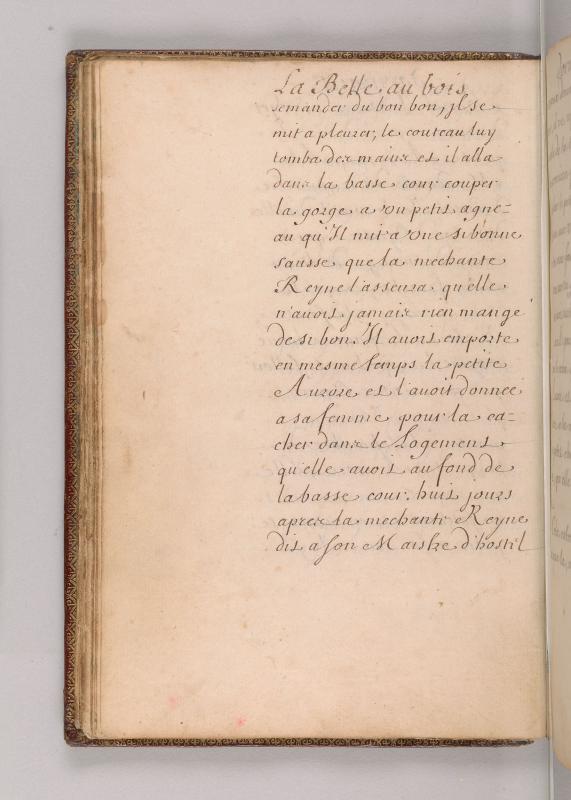 La Belle au bois
demander du bon bon, jl se
mit a pleurer, le couteau luy
tomba des mains et il alla
dans la basse cour couper
la gorge a un petit agne=
au qu'Il mit a une si bonne
sausse que la mechante
Reyne l'asseura qu'elle
n'avoit jamais rien mangé
de si bon. Il avoit emporté
en mesme temps la petite
Aurore et l'avoit donnee
a sa femme pour la ca=
cher dans le Logement
qu'elle avoit au fond de
la basse cour. huit jours
apres la mechante Reyne
dit a son Maistre d'hostel